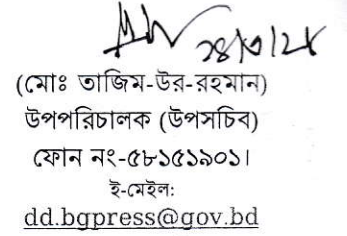 (মোঃ তাজিম-উর-রহমান)
উপপরিচালক (উপসচিব)
ফোন নং-৫৮১৫১৯০১।
ই-মেইল:
dd.bgpress@gov.bd